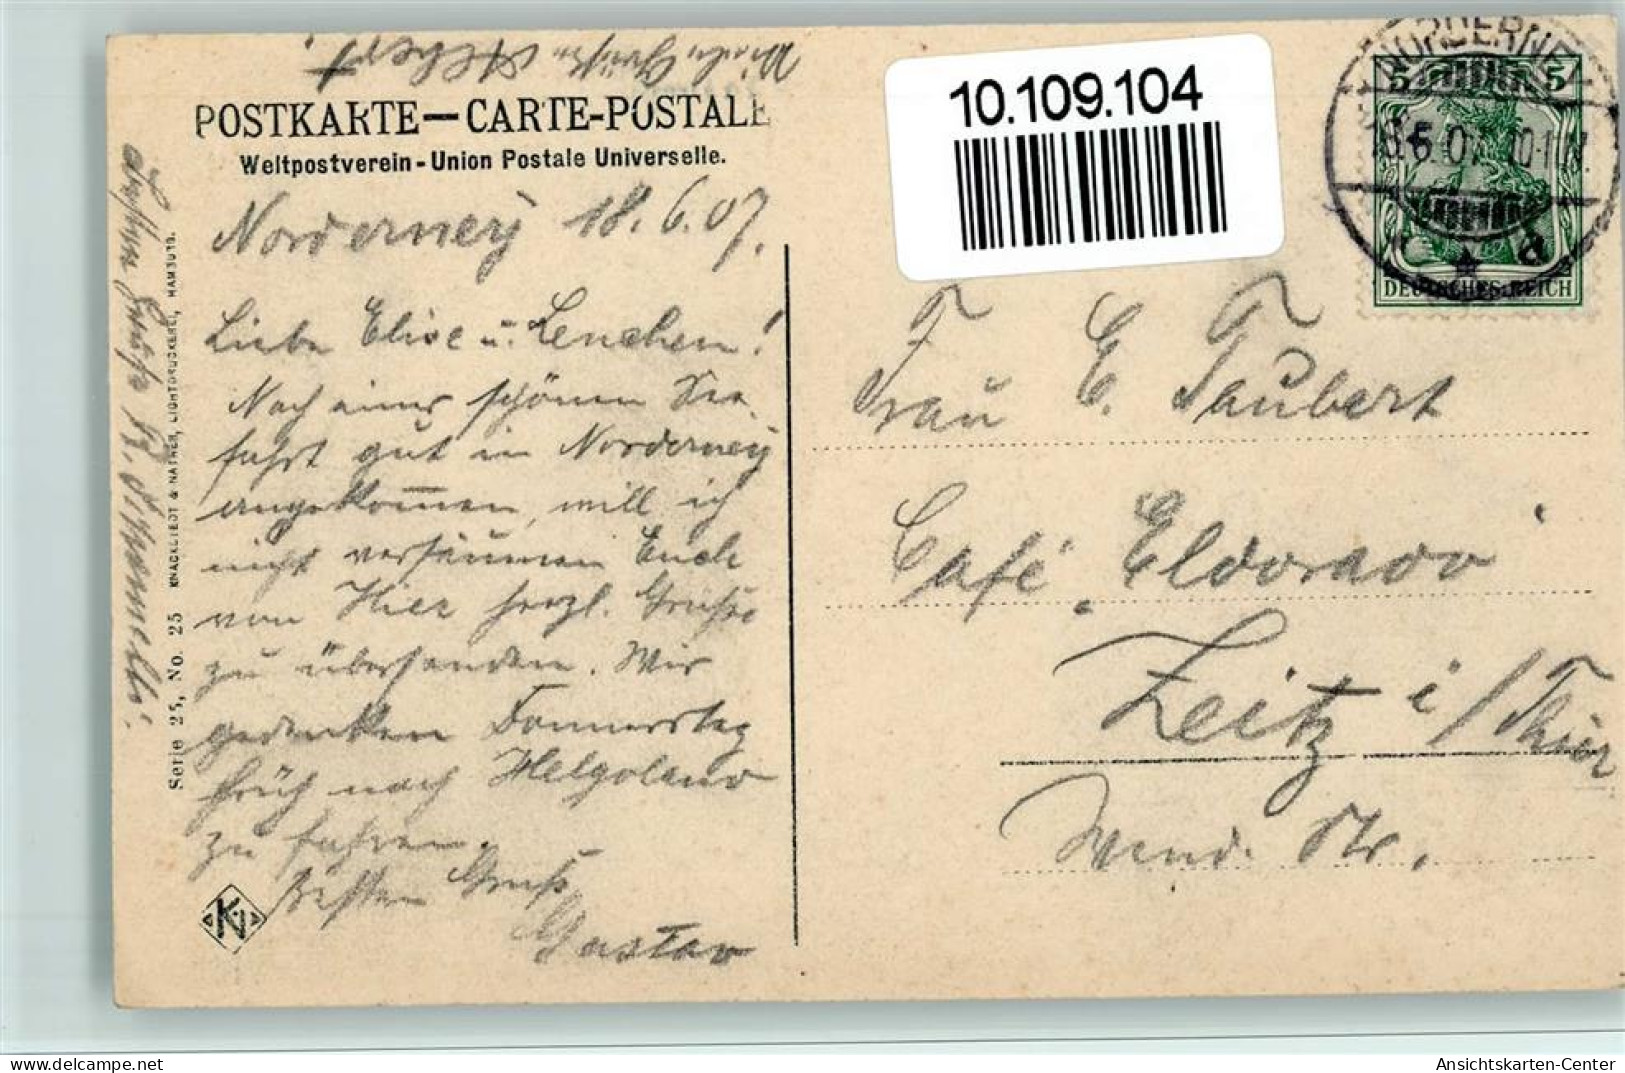 Viele Grüße Albert
POSTKARTE — CARTE-POSTALE
Weltpostverein - Union Postale Universelle.
Norderney 18.6.07.
Liebe Elise u. Lenchen!
Nach einer schönen See-
fahrt gut in Norderney
angekommen, will ich
nicht versäumen Euch
von Hier herzl. Grüße
zu übersenden. Wir
gedenken Donnerstag
früh nach Helgoland
zu fahren.
Besten Gruß
Gustav
Besten Gruß
Serie 25, No. 25 KNACKSTEDT & NÄTHER, LICHTDRUCKEREI, HAMBURG.
KN
10.109.104
NORDERNEY
18.6.07
5 5
DEUTSCHES REICH
Frau E. Taubert
Café „Eldorado"
Zeitz i/Thür
Wend. Str.
Ansichtskarten-Center